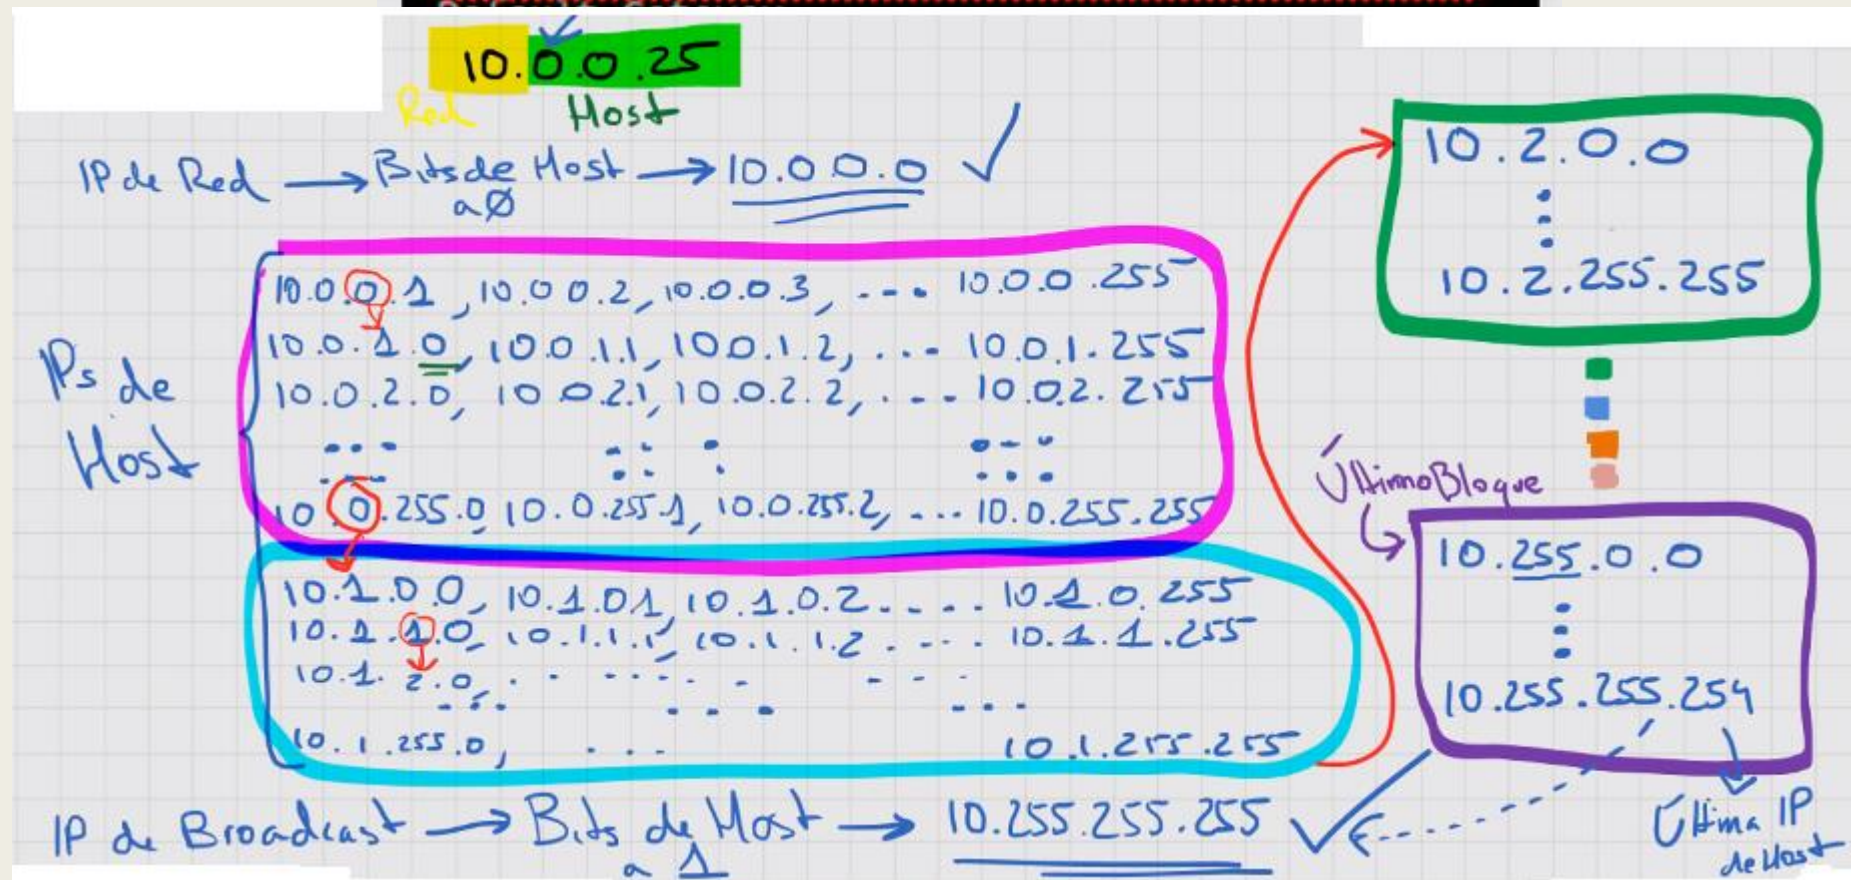 10.0.0.25
Red Host
IP de Red → Bits de Host → 10.0.0.0 ✓
a Ø
IPs de
Host
10.0.0.1, 10.0.0.2, 10.0.0.3, ... 10.0.0.255
10.0.1.0, 10.0.1.1, 10.0.1.2, ... 10.0.1.255
10.0.2.0, 10.0.2.1, 10.0.2.2, ... 10.0.2.255
10.0.255.0, 10.0.255.1, 10.0.255.2, ... 10.0.255.255
10.1.0.0, 10.1.0.1, 10.1.0.2 .... 10.1.0.255
10.1.1.0, 10.1.1.1, 10.1.1.2 .... 10.1.1.255
10.1.2.0, ...
10.1.255.0, ... 10.1.255.255
10.2.0.0
10.2.255.255
Último Bloque
10.255.0.0
10.255.255.254
Última IP
de Host
IP de Broadcast → Bits de Host → 10.255.255.255 ✓
a 1